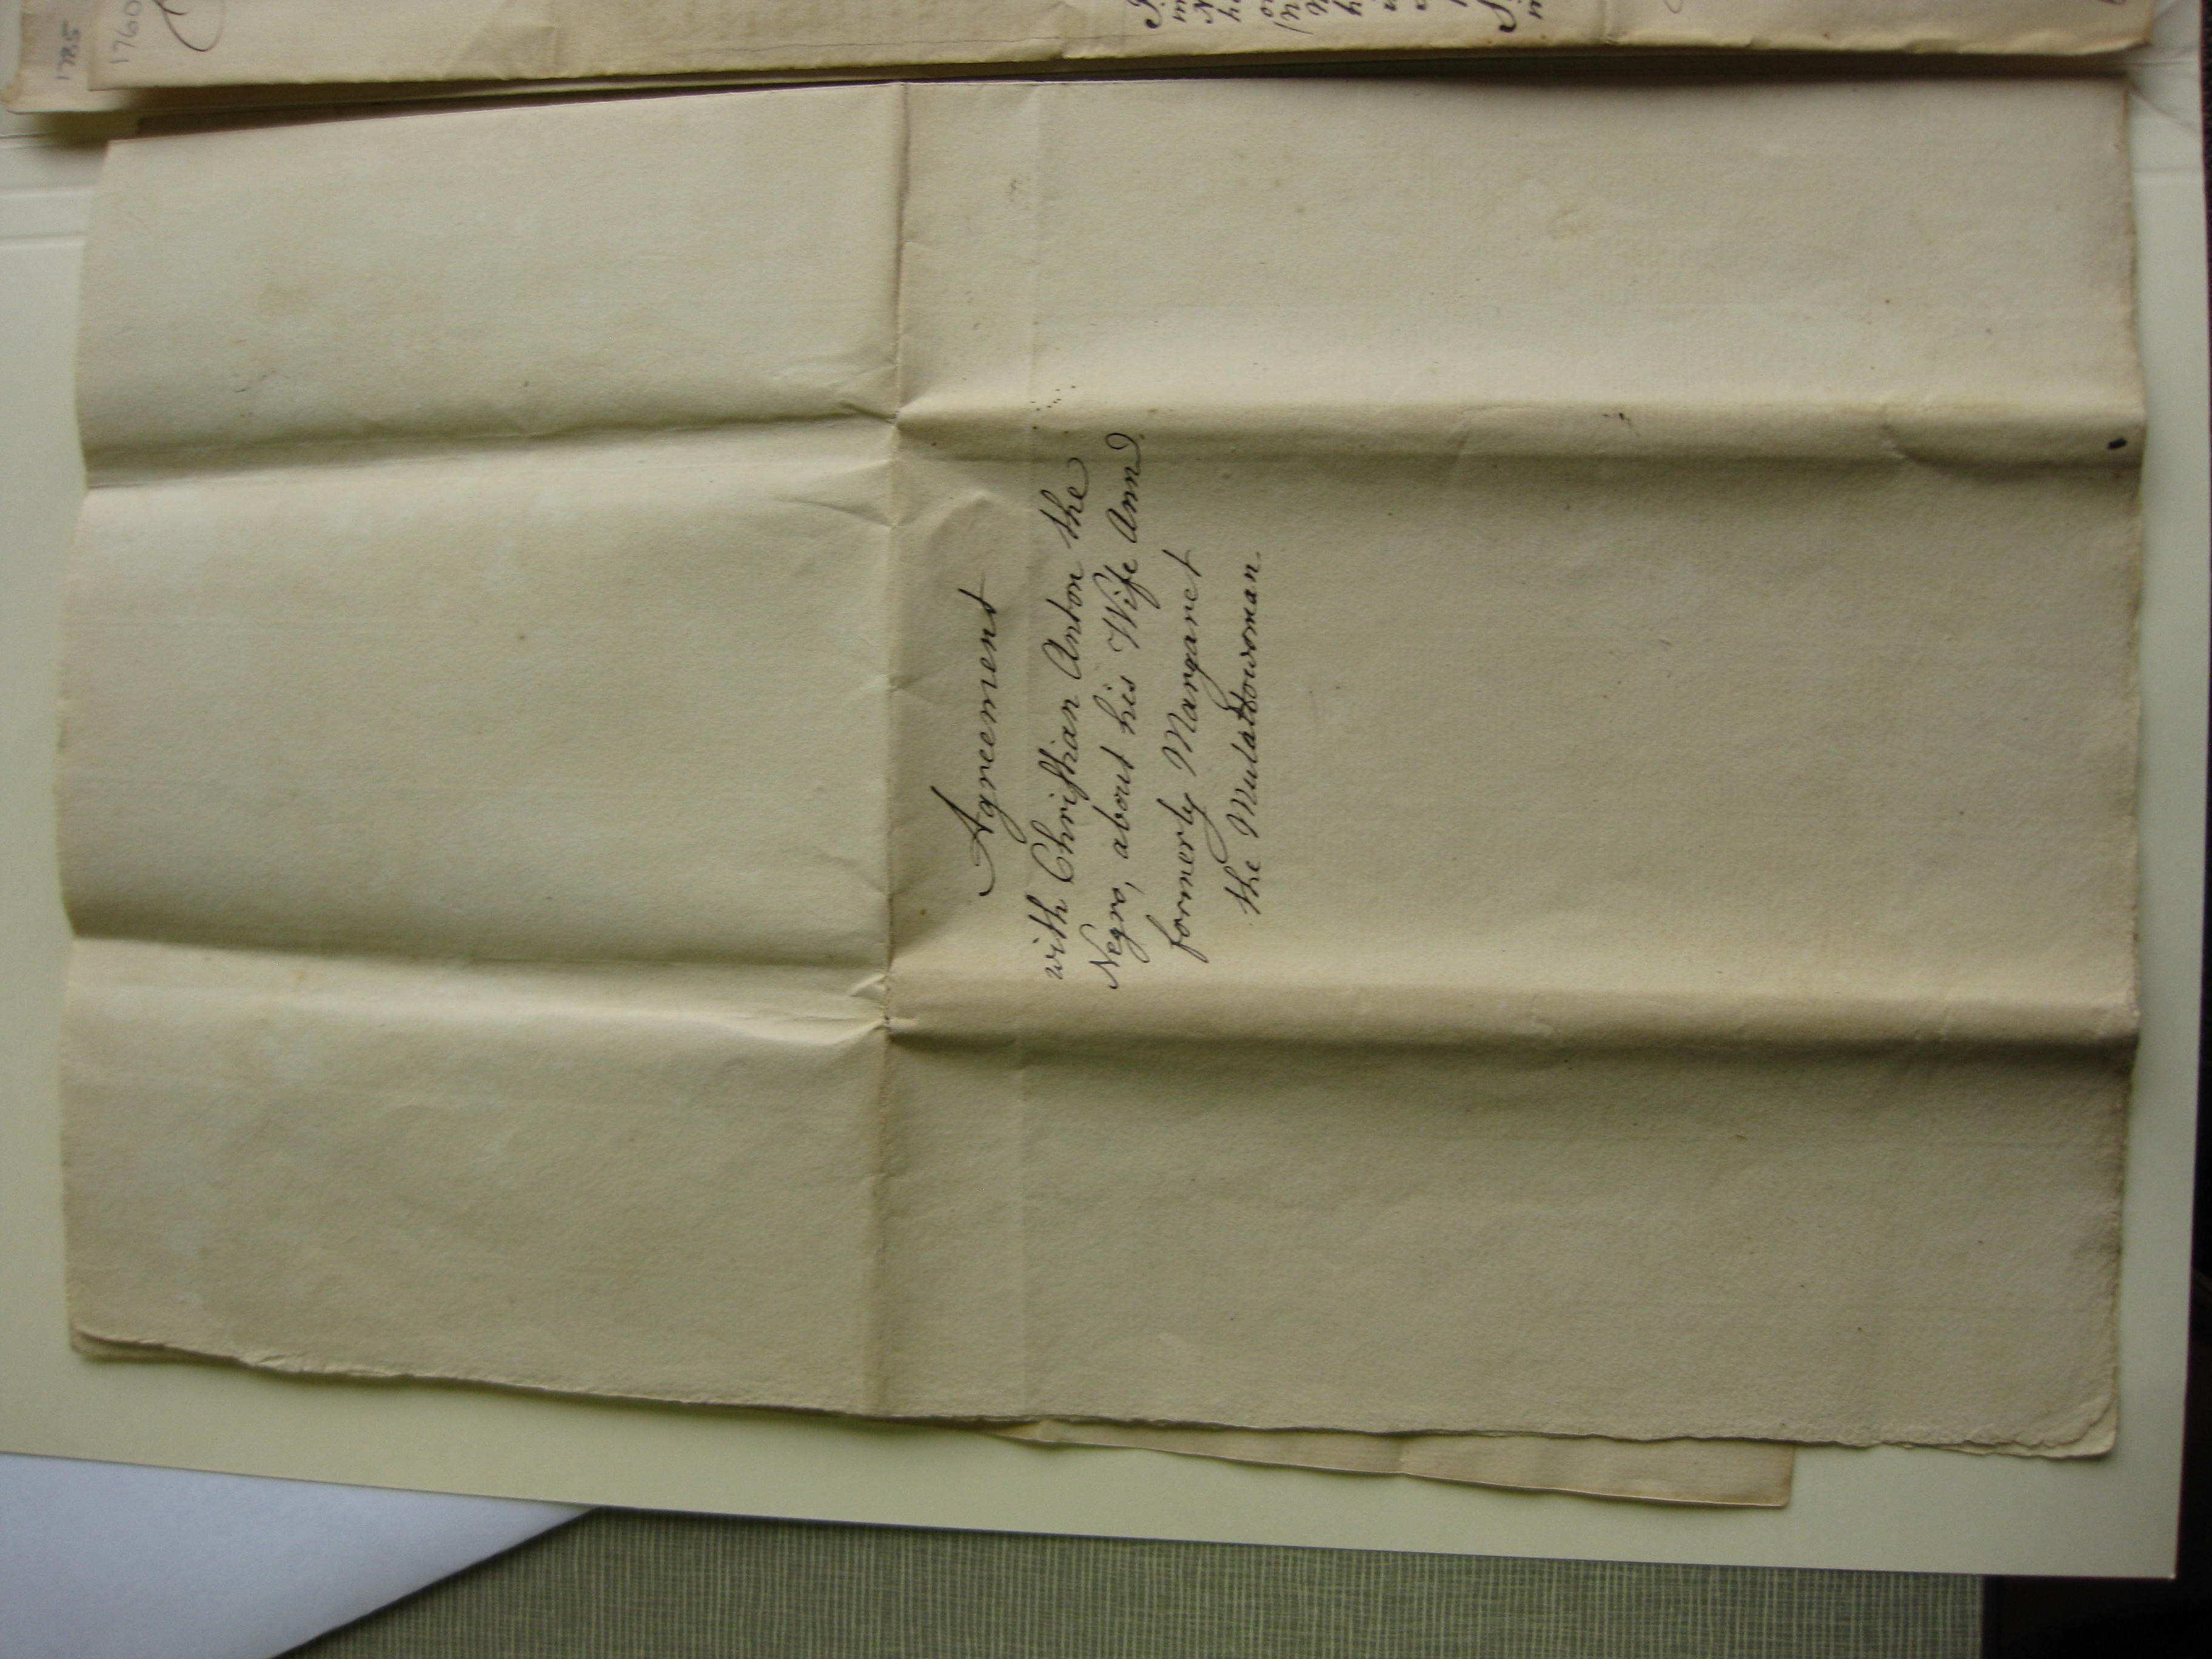 Agreement
with Christian Anton the
Negro, about his Wife Ann,
formerly Margaret
the Mulattowoman.
1785
1760